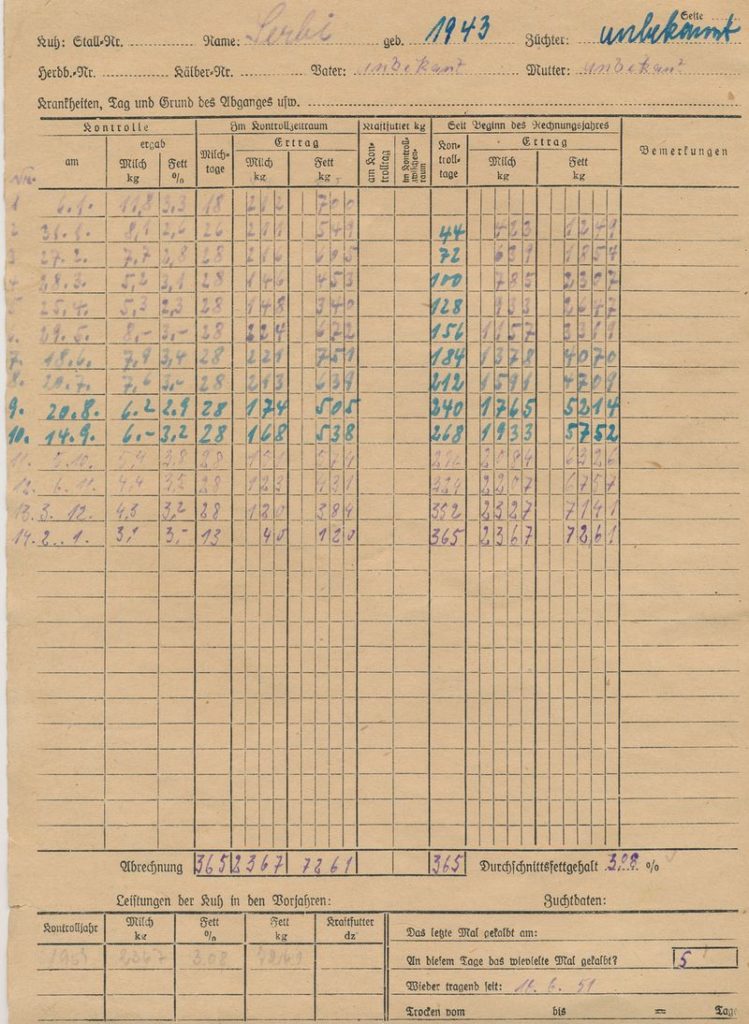 Seite
Kuh: Stall-Nr. Name: Serbi geb. 1943 Züchter: unbekannt
Herdb.-Nr. Kälber-Nr. Vater: unbekant Mutter: unbekant
Krankheiten, Tag und Grund des Abganges usw.
Kontrolle Im Kontrollzeitraum Kraftfutter kg Seit Beginn des Rechnungsjahres
am ergab Milch- tage Ertrag am Kon- trolltag im Kontroll- zwischen- raum Kon- troll- tage Ertrag Bemerkungen
Milch kg Fett % Milch kg Fett kg Milch kg Fett kg
1 6.1. 11,8 3,3 18 212 700
2 31.1. 8,1 2,6 26 211 549 44 423 1249
3 27.2. 7,7 2,8 28 216 605 72 639 1854
28.3. 5,2 3,1 28 146 453 100 785 2307
25.4. 5,3 2,3 28 148 340 128 933 2647
29.5. 8,- 3,- 28 224 672 156 1157 3319
7. 18.6. 7,9 3,4 28 221 751 184 1378 4070
8. 20.7. 7,6 3,- 28 213 639 212 1591 4709
9. 20.8. 6.2 2.9 28 174 505 240 1765 5214
10. 14.9. 6.- 3,2 28 168 538 268 1933 5752
11. 5.10. 5,4 3,8 28 151 574 296 2084 6326
12. 6.11. 4,4 3,5 28 123 431 324 2207 6757
13. 3.12. 4,3 3,2 28 120 384 352 2327 7141
14. 2.1. 3,1 3,- 13 40 120 365 2367 72,61
Abrechnung 365 2367 7261 365 Durchschnittsfettgehalt 3,08 %
Leistungen der Kuh in den Vorjahren: Zuchtdaten:
Kontrolljahr Milch kg Fett % Fett kg Kraftfutter dz
Das letzte Mal gekalbt am:
2367 3.08
An diesem Tage das wievielte Mal gekalbt? 5
Wieder tragend seit: 6. 51
Trocken vom bis = Tage